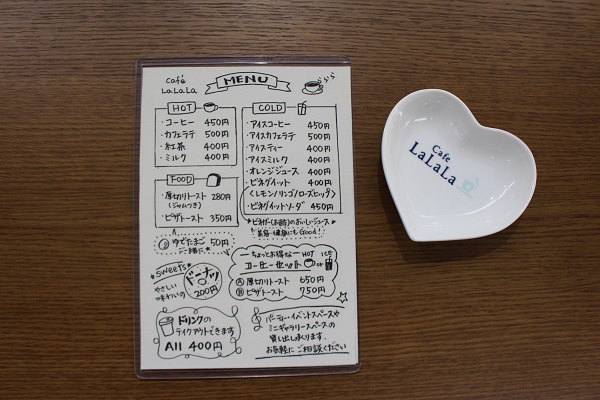 Café
LaLaLa
MENU
ららら
HOT
・コーヒー 450円
・カフェラテ 500円
・紅茶 400円
・ミルク 400円
COLD
・アイスコーヒー 450円
・アイスカフェラテ 500円
・アイスティー 400円
・アイスミルク 400円
・オレンジジュース 400円
・ビネグイット 400円
(レモン/リンゴ/ローズヒップ)
・ビネグイットソーダ 450円
ビネガー(お酢)のおいしいジュース
美容・健康にもGood!
FOOD
・厚切りトースト 280円
(ジャムつき)
・ピザトースト 350円
ゆでたまご 50円
ご一緒に
sweets
やさしい
味わいの
ドーナツ
200円
ちょっとお得な
コーヒーセット
HOT or ICE
A 厚切りトースト 650円
B ピザトースト 750円
ドリンクの
テイクアウトできます
All 400円
パーティー・イベントスペースや
ミニギャラリースペースの
貸し出し承ります。
お気軽にご相談ください
Cafe
LaLaLa